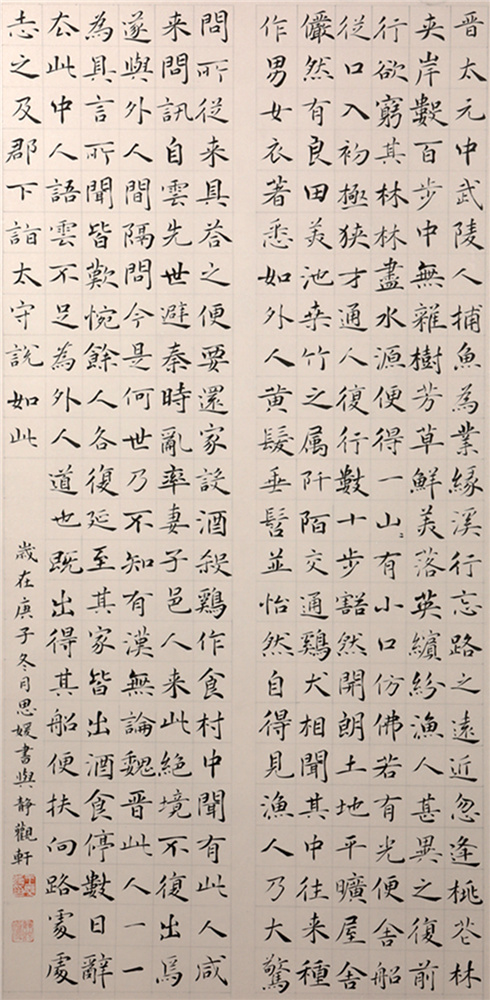 晋太元中武陵人捕魚為業緣溪行忘路之遠近忽逢桃花林
夾岸數百步中無雜樹芳草鮮美落英繽紛漁人甚異之復前
行欲窮其林林盡水源便得一山々有小口仿佛若有光便舍船
從口入初極狹才通人復行數十步豁然開朗土地平曠屋舍
儼然有良田美池桑竹之属阡陌交通鷄犬相聞其中往来種
作男女衣著悉如外人黄髮垂髫並怡然自得見漁人乃大驚
問所從来具答之便要還家設酒殺鷄作食村中聞有此人咸
来問訊自雲先世避秦時亂率妻子邑人来此絶境不復出焉
遂與外人間隔問今是何世乃不知有漢無論魏晋此人一一
為具言所聞皆歎惋餘人各復延至其家皆出酒食停數日辭
去此中人語雲不足為外人道也既出得其船便扶向路處處
志之及郡下詣太守說如此
歲在庚子冬月思媛書與静觀軒